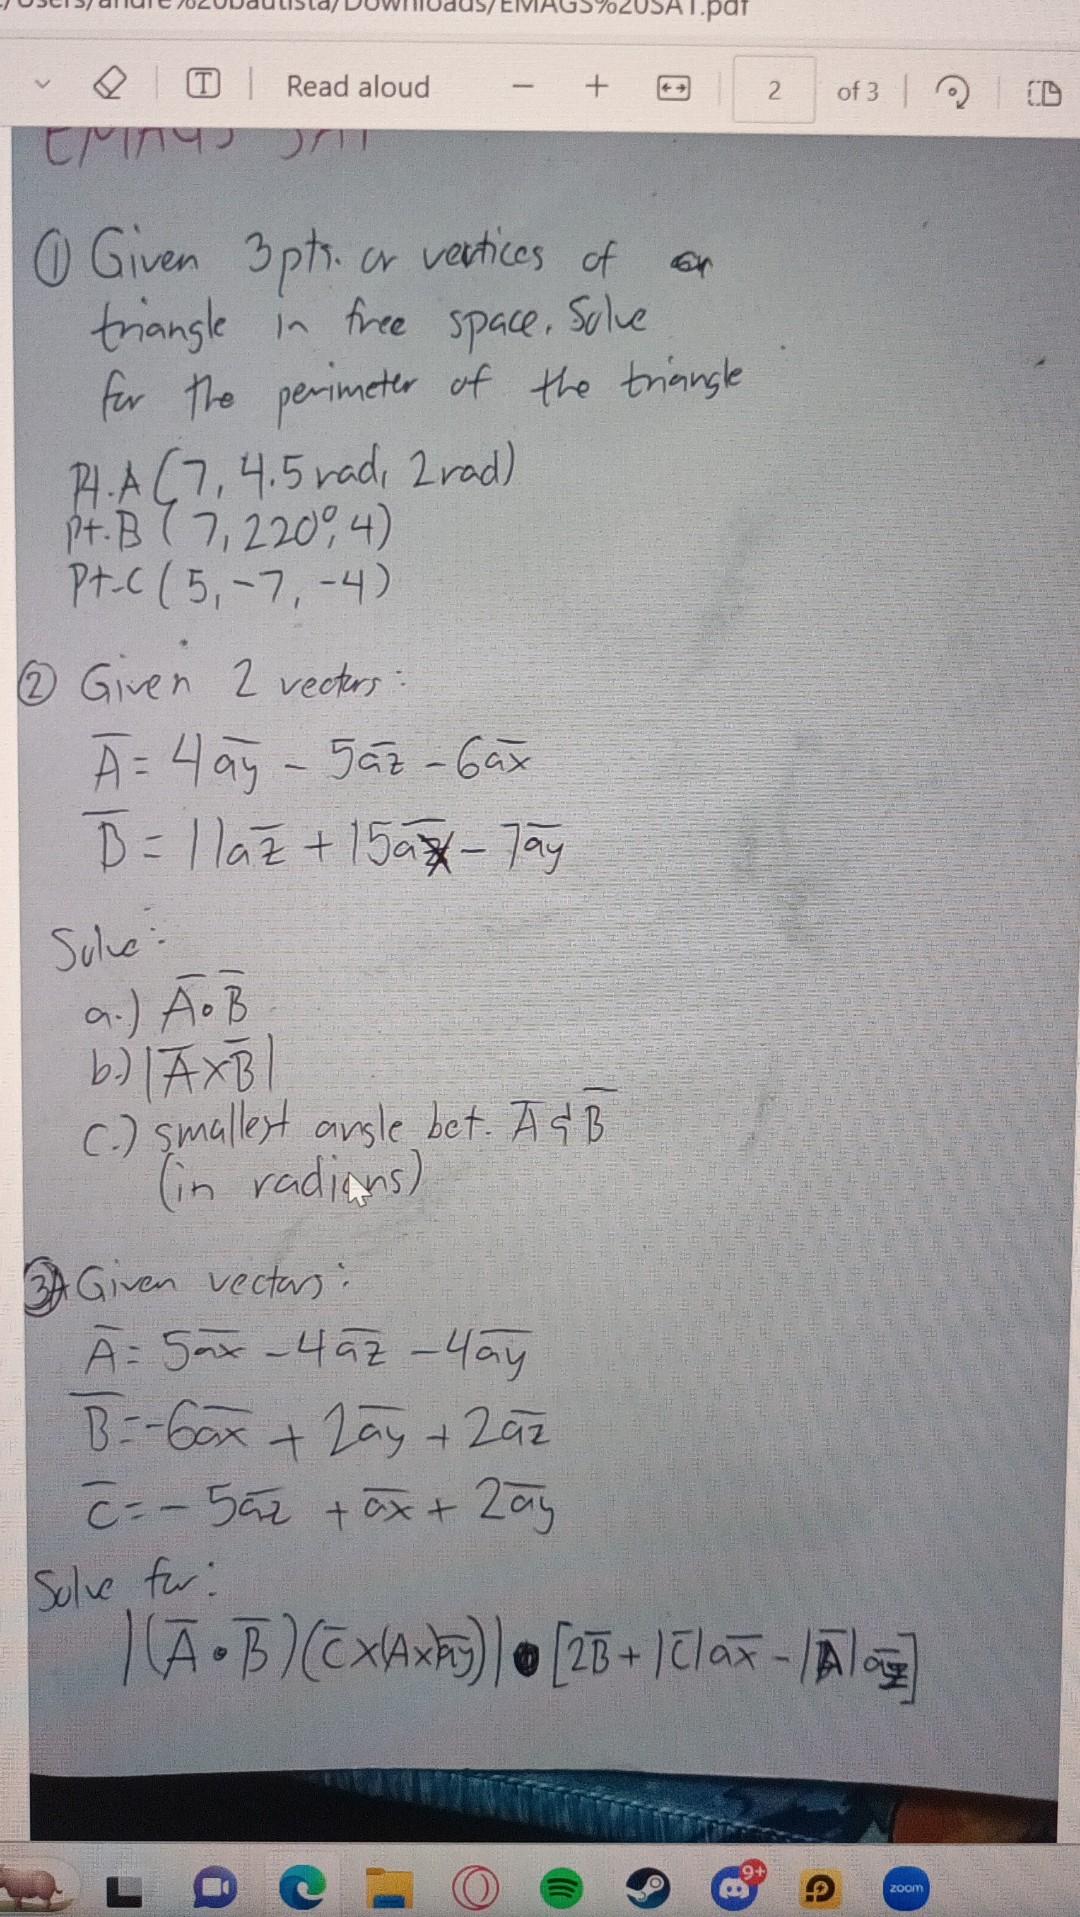 /Users/andre%20bautista/Downloads/EMAGS%20SAT.pdf
T Read aloud − + 2 of 3
EMAGS SAT
① Given 3 pts. or vertices of
triangle in free space. Solve
for the perimeter of the triangle
Pt. A (7, 4.5 rad, 2 rad)
Pt. B (7, 220°, 4)
Pt. C (5, -7, -4)
② Given 2 vectors:
A̅ = 4a̅y̅ - 5a̅z̅ - 6a̅x̅
B̅ = 11a̅z̅ + 15a̅x̅ - 7a̅y̅
Solve:
a.) A̅ • B̅
b.) |A̅ x B̅|
c.) smallest angle bet. A̅ & B̅
(in radians)
③ Given vectors:
A̅ = 5a̅x̅ - 4a̅z̅ - 4a̅y̅
B̅ = -6a̅x̅ + 2a̅y̅ + 2a̅z̅
C̅ = -5a̅z̅ + a̅x̅ + 2a̅y̅
Solve for:
|(A̅ • B̅)(C̅ x (A x a̅y̅))| • [2B̅ + |C̅| a̅x̅ - |A̅| a̅z̅]
9+
zoom